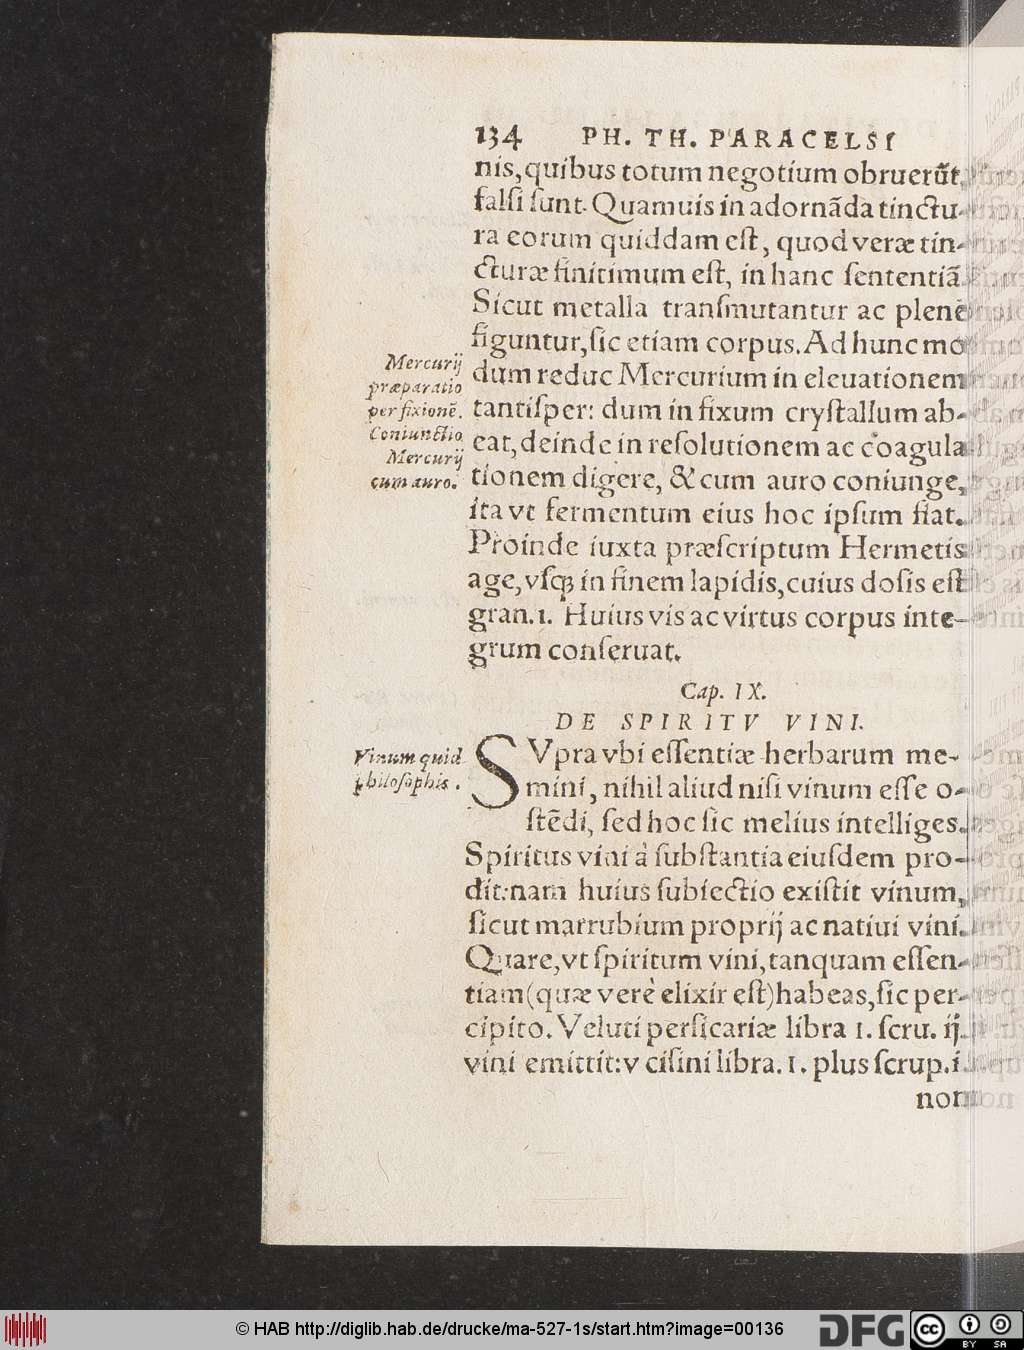 134 PH. TH. PARACELSI
nis, quibus totum negotium obruerūt,
falsi sunt. Quamuis in adornāda tinctu-
ra eorum quiddam est, quod veræ tin-
cturæ finitimum est, in hanc sententiā.
Sicut metalla transmutantur ac plenè
figuntur, sic etiam corpus. Ad hunc mo
dum reduc Mercurium in eleuationem
tantisper: dum in fixum crystallum ab-
eat, deinde in resolutionem ac coagula
tionem digere, & cum auro coniunge,
ita vt fermentum eius hoc ipsum fiat.
Proinde iuxta præscriptum Hermetis
age, vsq; in finem lapidis, cuius dosis est
gran. 1. Huius vis ac virtus corpus inte-
grum conseruat.
Mercurij
præparatio
per fixionē.
Coniunctio
Mercurij
cum auro.
Cap. IX.
DE SPIRITV VINI.
SVpra vbi essentiæ herbarum me-
mini, nihil aliud nisi vinum esse o-
stēdi, sed hoc sic melius intelliges.
Spiritus vini à substantia eiusdem pro-
dit: nam huius subiectio existit vinum,
sicut marrubium proprij ac natiui vini.
Quare, vt spiritum vini, tanquam essen-
tiam (quæ verè elixir est) habeas, sic per-
cipito. Veluti persicariæ libra 1. scru. ij.
vini emittit: v cisini libra. 1. plus scrup. i.
non
Vinum quid
philosophis.
© HAB http://diglib.hab.de/drucke/ma-527-1s/start.htm?image=00136
DFG
cc BY SA